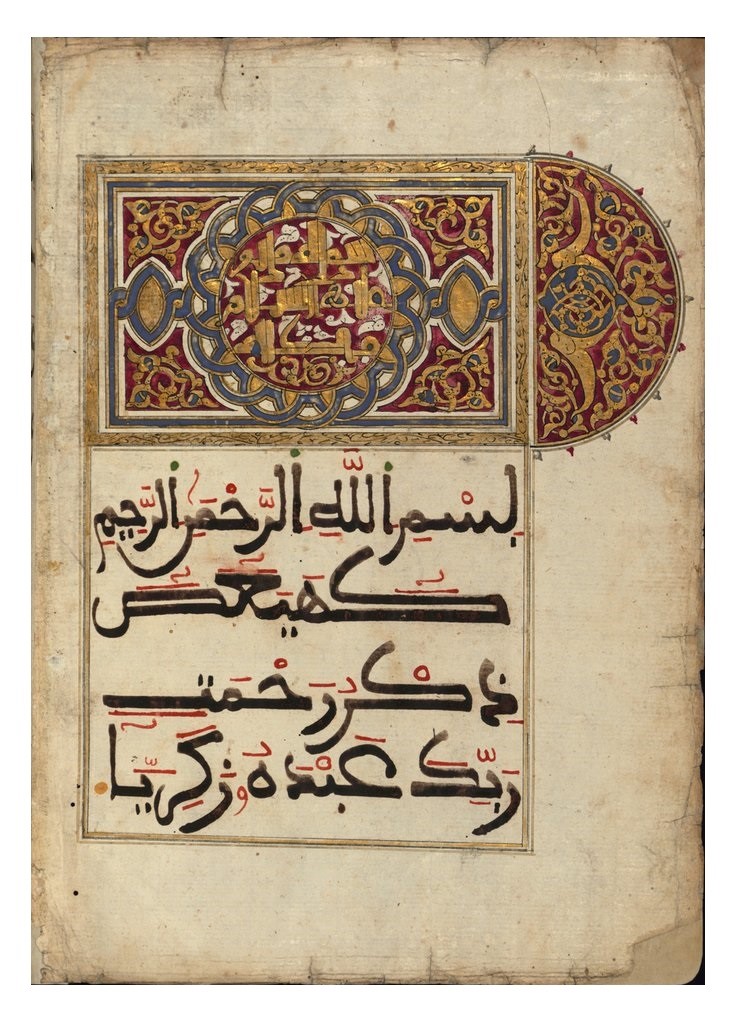 بِسْمِ اللَّهِ الرَّحْمَنِ الرَّحِيمِ
كهيعص
ذِكْرُ رَحْمَتِ
رَبِّكَ عَبْدَهُ زَكَرِيَّا